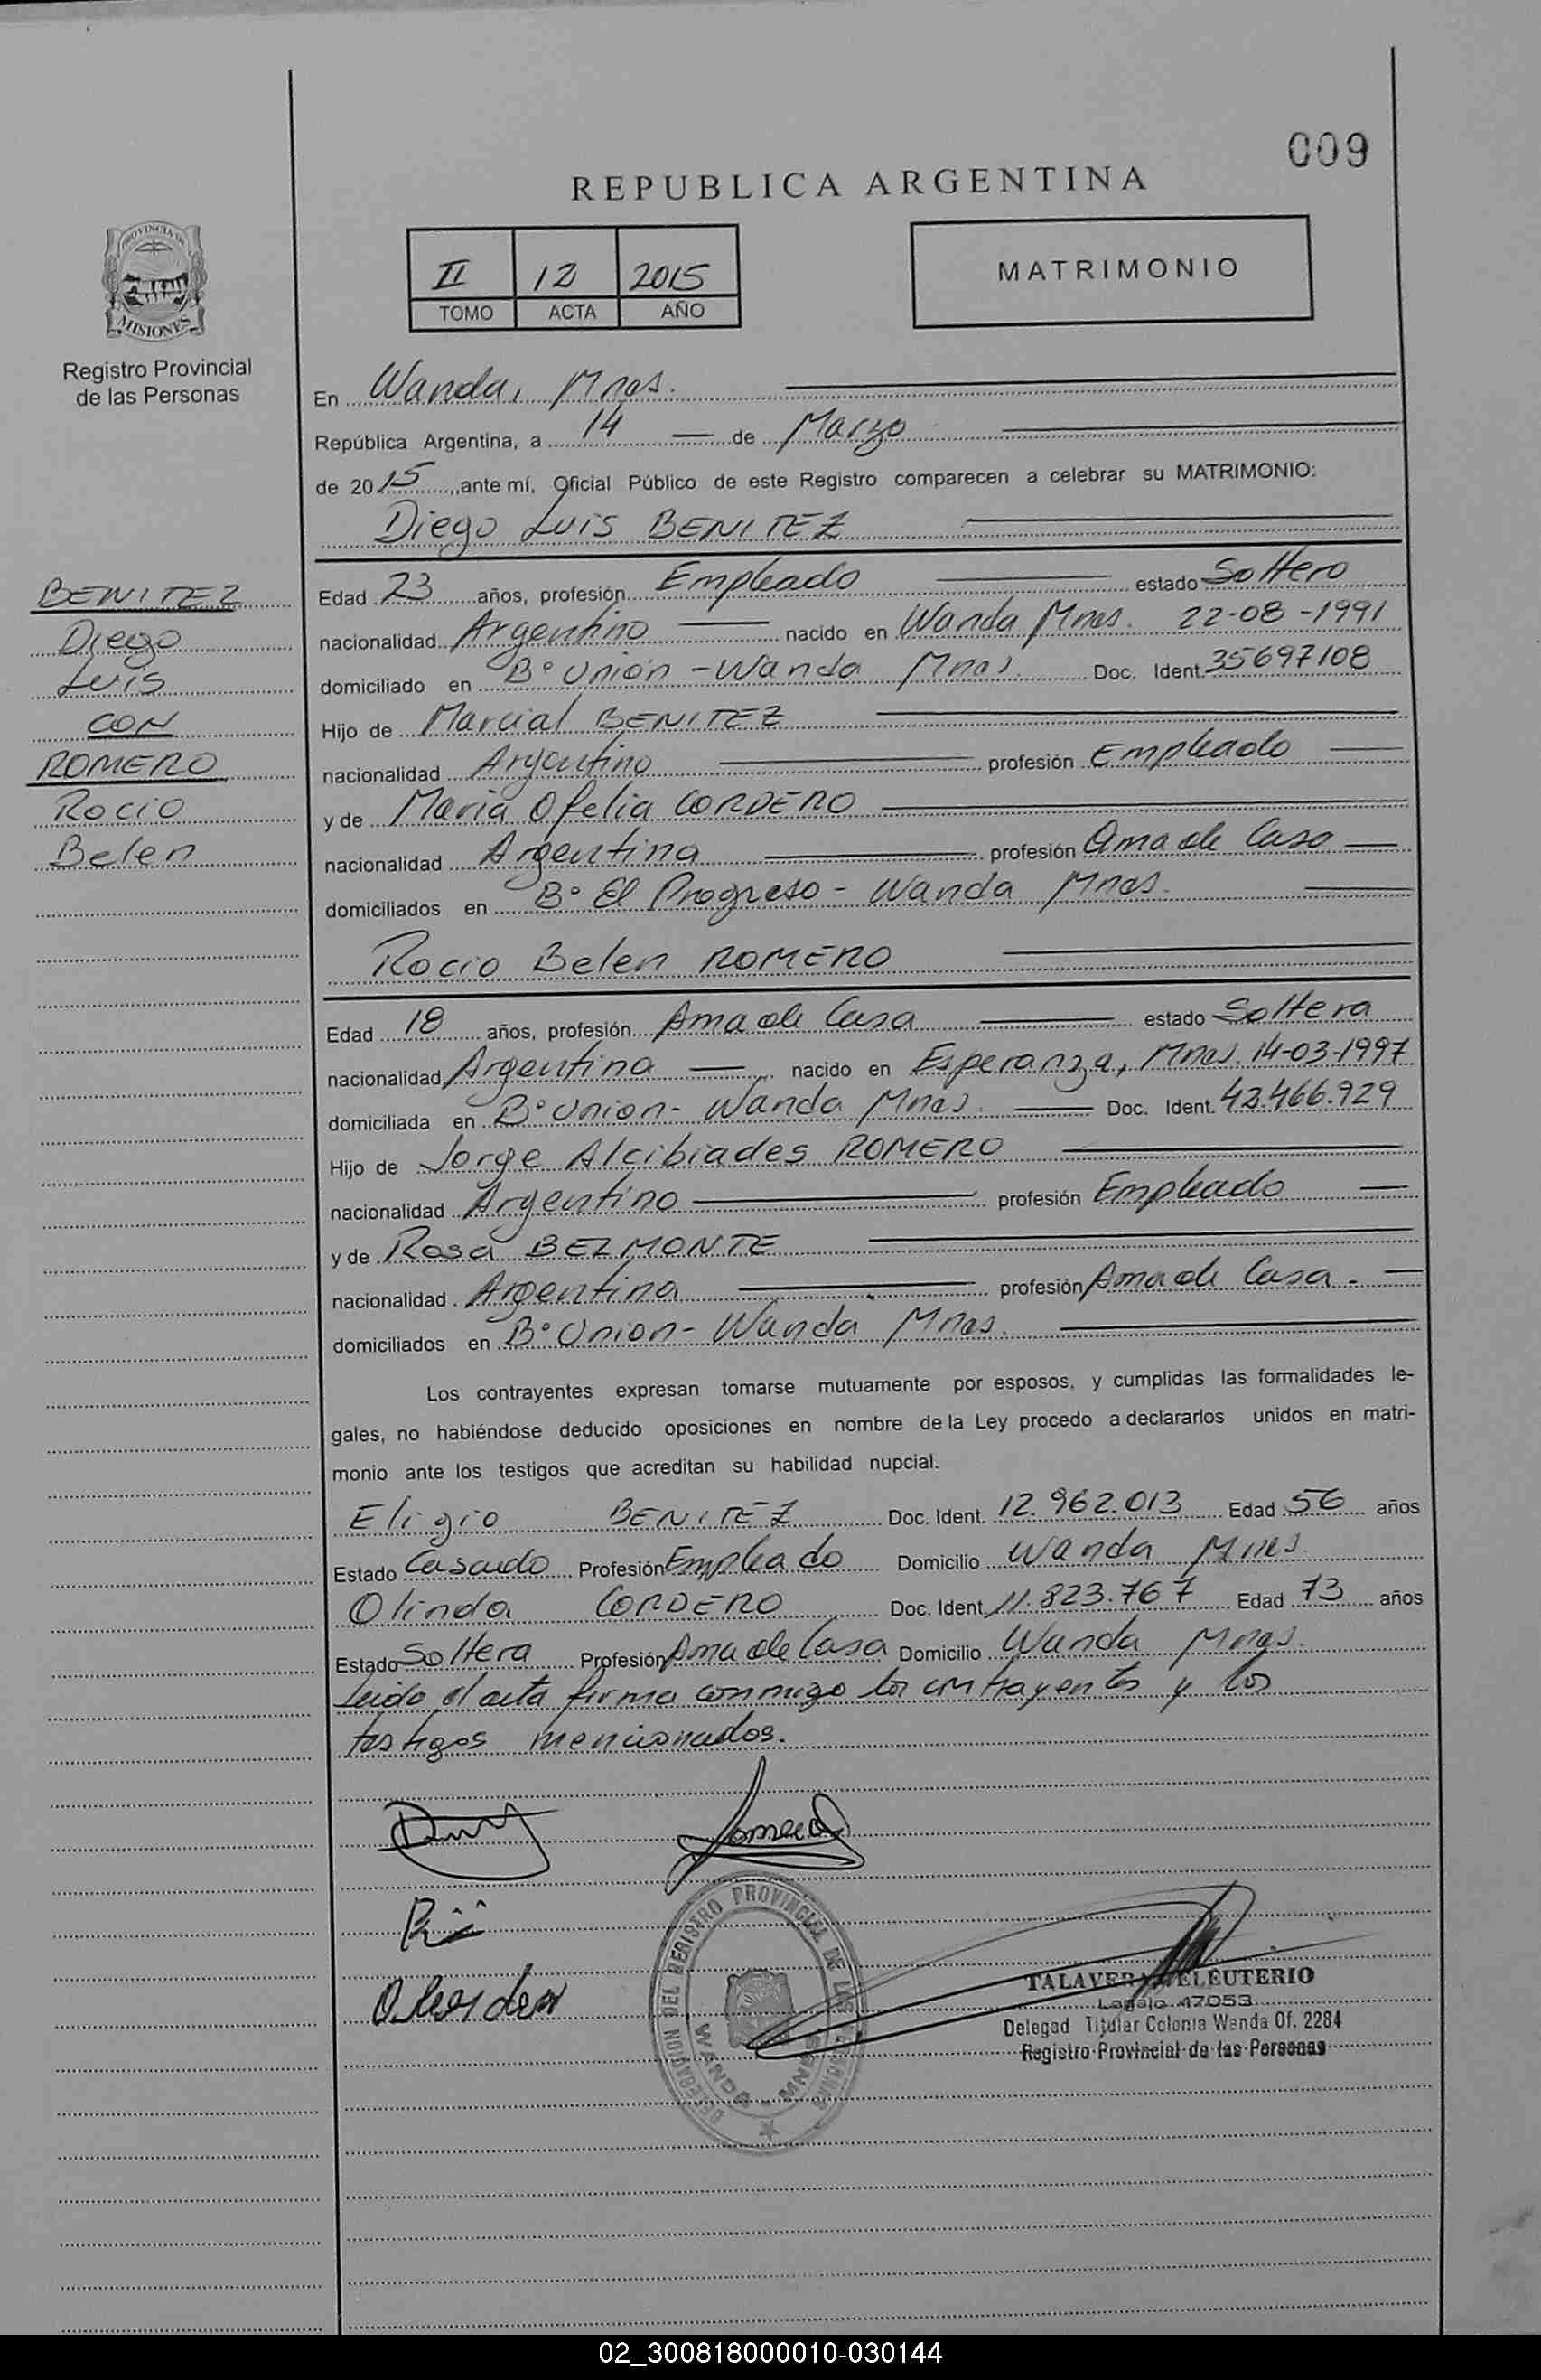 009
REPUBLICA ARGENTINA
PROVINCIA DE
MISIONES
Registro Provincial
de las Personas
II 12 2015
TOMO ACTA AÑO
MATRIMONIO
En Wanda, Mnes.
República Argentina, a 14 de Marzo
de 2015, ante mí, Oficial Público de este Registro comparecen a celebrar su MATRIMONIO:
Diego Luis BENITEZ
BENITEZ
Diego
Luis
CON
ROMERO
Rocio
Belen
Edad 23 años, profesión Empleado estado Soltero
nacionalidad Argentino nacido en Wanda Mnes. 22-08-1991
domiciliado en B° Unión - Wanda Mnes. Doc. Ident. 35697108
Hijo de Marcial BENITEZ
nacionalidad Argentino profesión Empleado
y de Maria Ofelia CORDERO
nacionalidad Argentina profesión Ama de Casa
domiciliados en B° El Progreso - Wanda Mnes.
Rocio Belen ROMERO
Edad 18 años, profesión Ama de Casa estado Soltera
nacionalidad Argentina nacido en Esperanza, Mnes. 14-03-1997
domiciliada en B° Union - Wanda Mnes. Doc. Ident.
Hijo de Jorge Alcibiades ROMERO
nacionalidad Argentino profesión Empleado
y de Rosa BELMONTE
nacionalidad Argentina profesión Ama de Casa.
domiciliados en B° Union - Wanda Mnes.
Los contrayentes expresan tomarse mutuamente por esposos, y cumplidas las formalidades le-
gales, no habiéndose deducido oposiciones en nombre de la Ley procedo a declararlos unidos en matri-
monio ante los testigos que acreditan su habilidad nupcial.
Eligio BENITEZ Doc. Ident. 12.962.013 Edad 56 años
Estado Casado Profesión Empleado Domicilio Wanda Mnes
Olinda CORDERO Doc. Ident. 11.823.767 Edad 73 años
Estado Soltera Profesión Ama de Casa Domicilio Wanda Mnes.
Leido el acta firma conmigo los contrayentes y los
testigos mencionados.
DELEGACION DEL REGISTRO PROVINCIAL DE LAS
WANDA - MNES
TALAVERA ELEUTERIO
Legajo 47053
Delegad Titular Colonia Wanda Of. 2284
Registro Provincial de las Personas
02_300818000010-030144